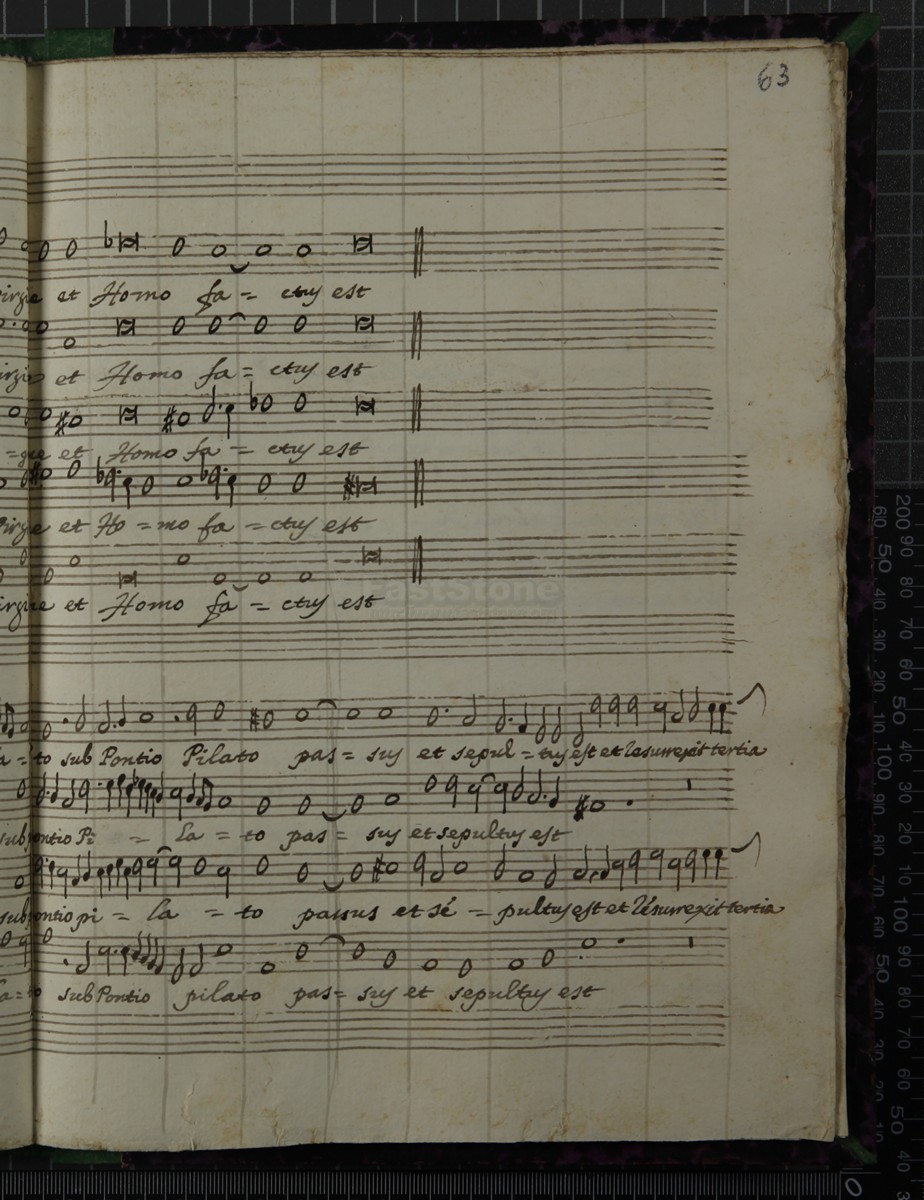 63
et Homo fa = ctus est
et Homo fa = ctus est
=gne et Homo fa = ctus est
et Ho = mo fa = ctus est
et Homo fa = ctus est
FastStone
to sub Pontio Pilato pas = sus et sepul = tus est et Resurrexit tertia
sub pontio Pi = la = to pas = sus et sepultus est
sub pontio pi = la = to passus et sé = pultus est et Résurrexit tertia
sub Pontio pilato pas = sus et sepultus est